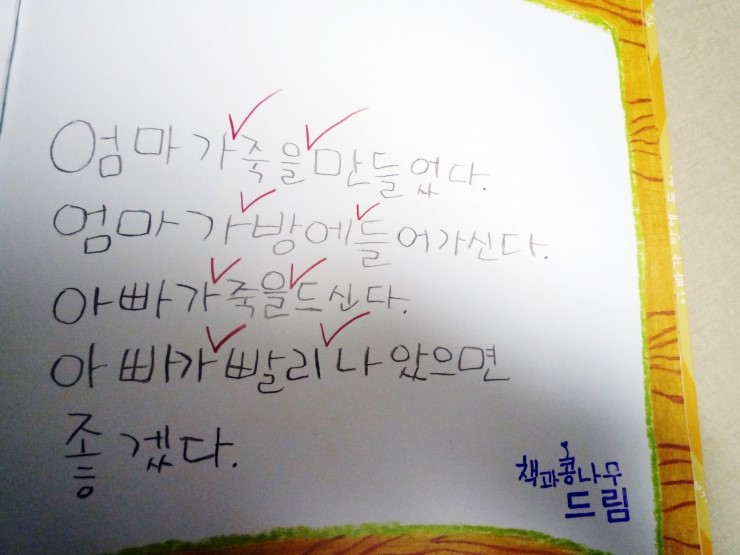 엄마가 죽을 만들었다.
엄마가 방에 들어가신다.
아빠가 죽을 드신다.
아빠가 빨리 나았으면
좋겠다.
책과콩나무
드림